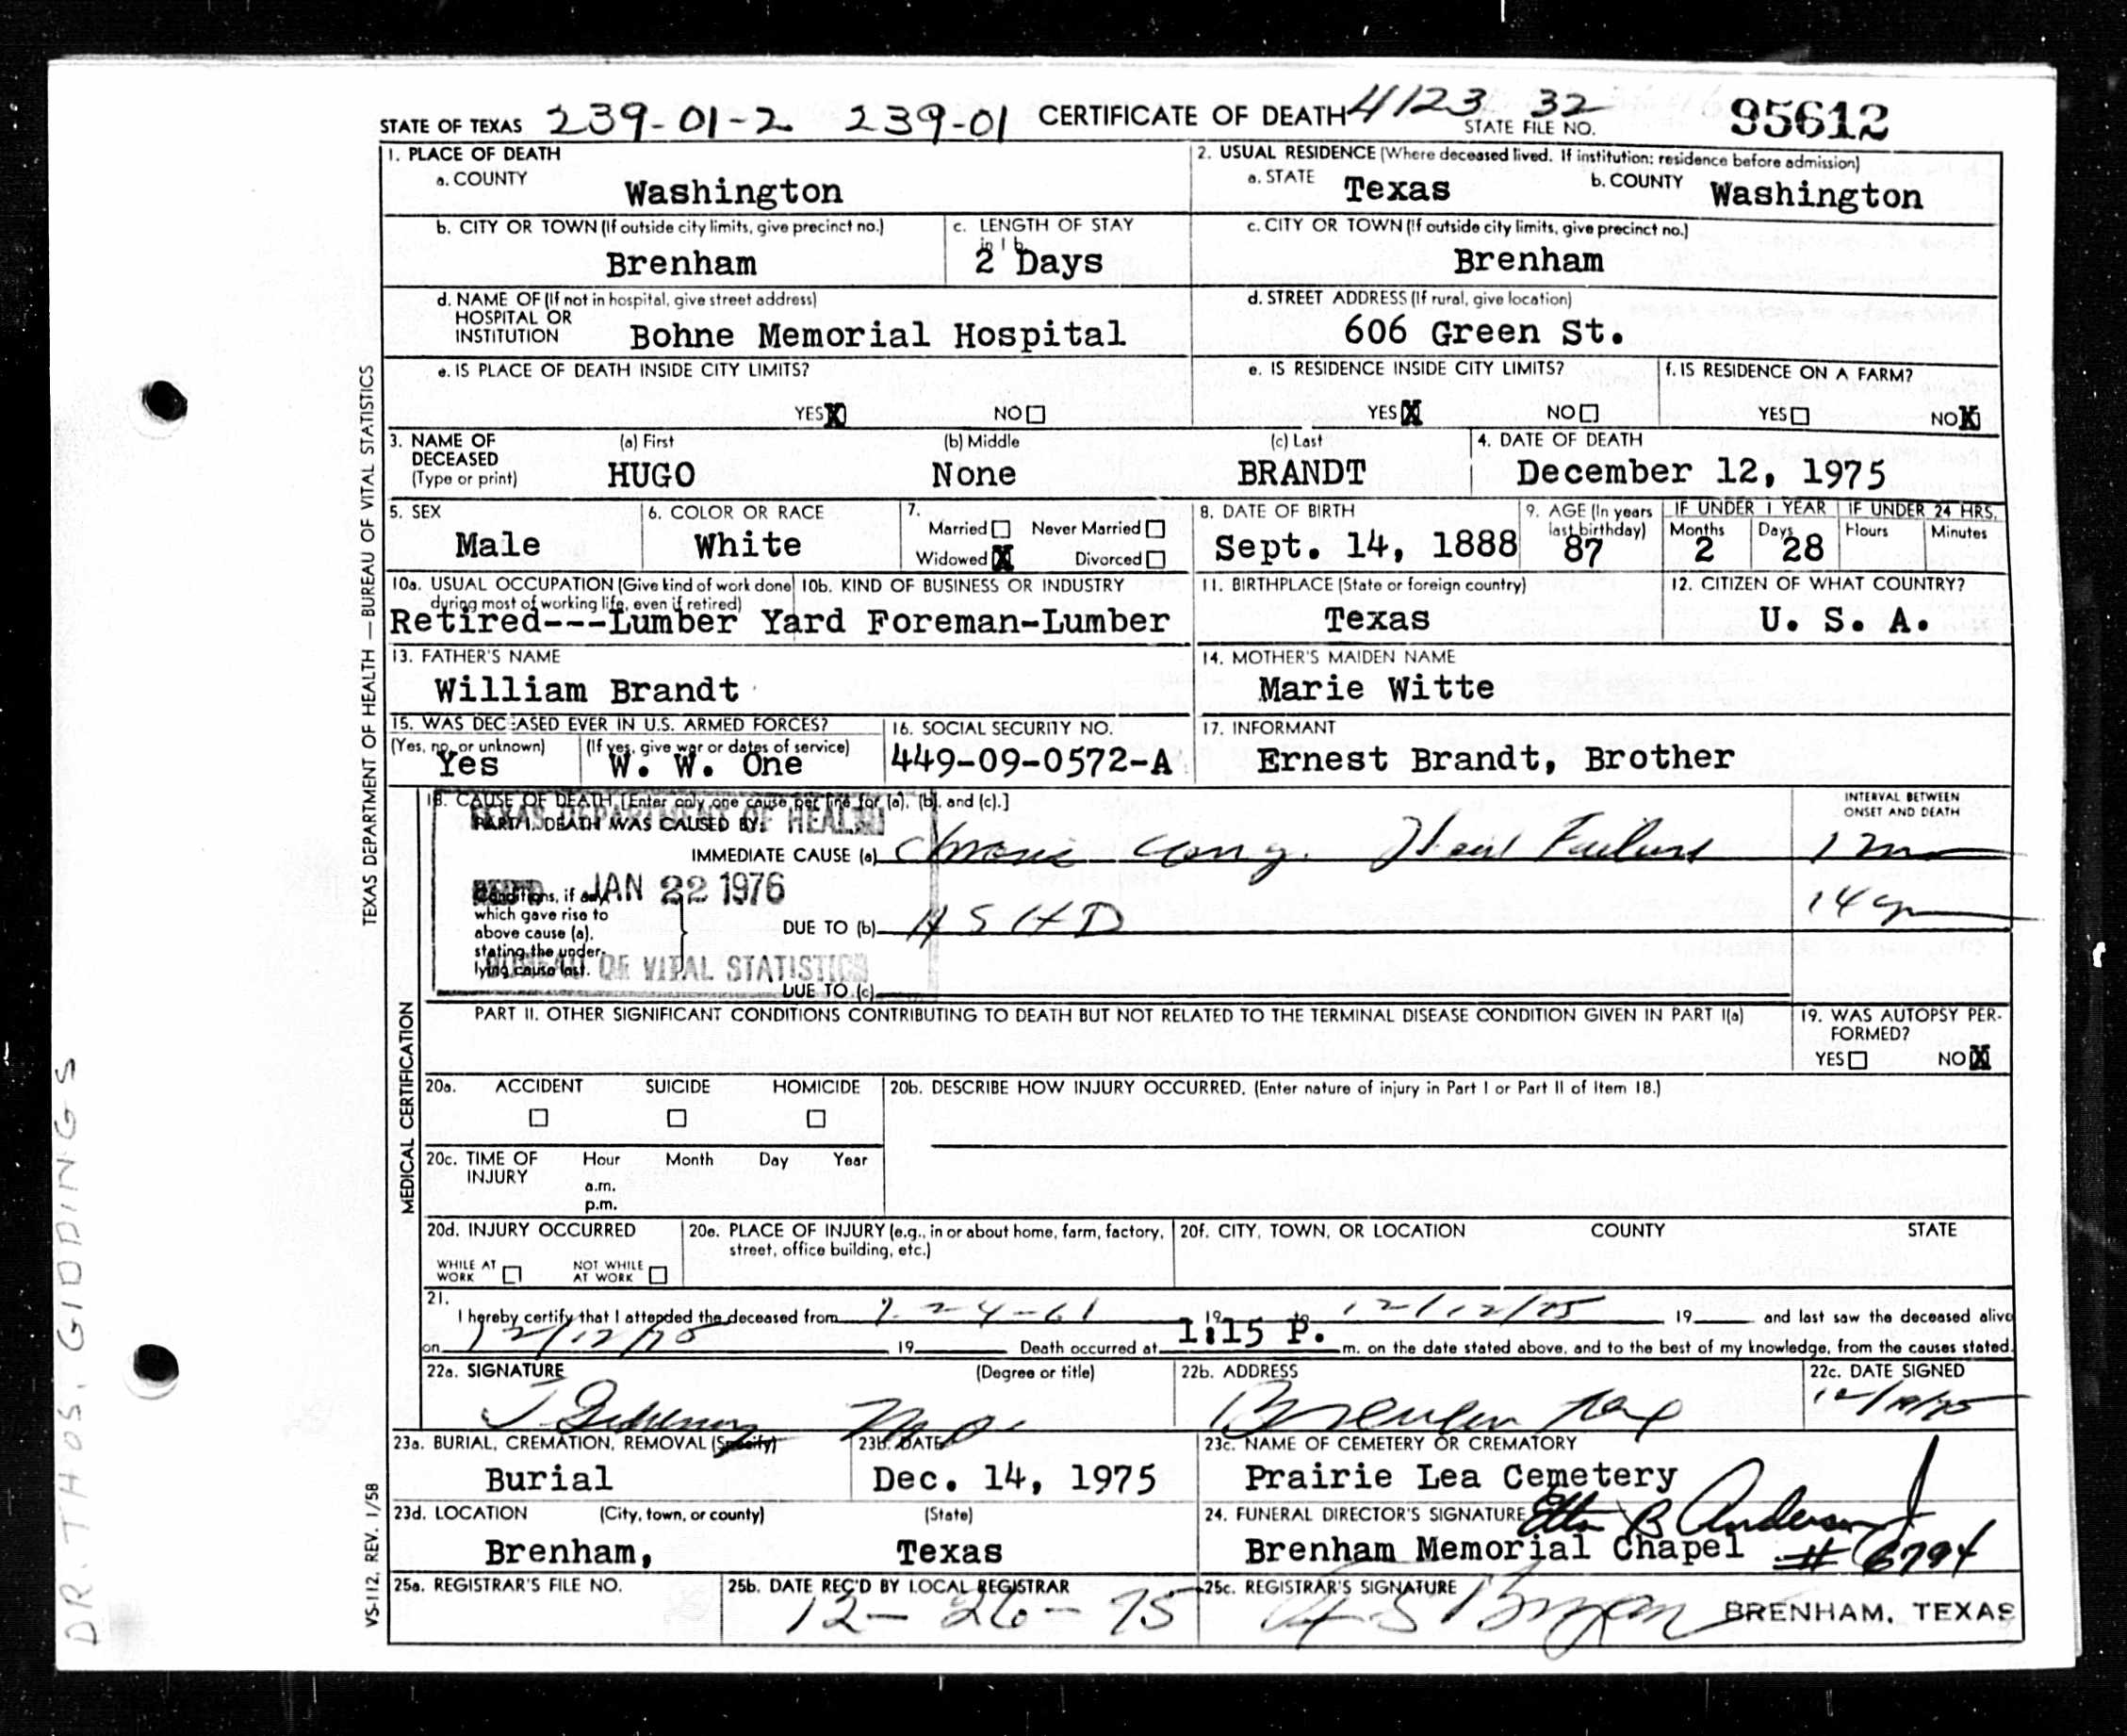 STATE OF TEXAS 239-01-2 239-01 CERTIFICATE OF DEATH 4123 32 STATE FILE NO. 95612
1. PLACE OF DEATH
a. COUNTY Washington
2. USUAL RESIDENCE (Where deceased lived. If institution: residence before admission)
a. STATE Texas b. COUNTY Washington
b. CITY OR TOWN (If outside city limits, give precinct no.) Brenham
c. LENGTH OF STAY in 1 b. 2 Days
c. CITY OR TOWN (If outside city limits, give precinct no.) Brenham
d. NAME OF (If not in hospital, give street address)
HOSPITAL OR
INSTITUTION Bohne Memorial Hospital
d. STREET ADDRESS (If rural, give location)
606 Green St.
e. IS PLACE OF DEATH INSIDE CITY LIMITS?
YES X NO
e. IS RESIDENCE INSIDE CITY LIMITS?
YES X NO
f. IS RESIDENCE ON A FARM?
YES NO X
3. NAME OF DECEASED (Type or print)
(a) First HUGO
(b) Middle None
(c) Last BRANDT
4. DATE OF DEATH
December 12, 1975
5. SEX
Male
6. COLOR OR RACE
White
7. Married Never Married
Widowed X Divorced
8. DATE OF BIRTH
Sept. 14, 1888
9. AGE (In years last birthday)
87
IF UNDER 1 YEAR
Months 2 Days 28
IF UNDER 24 HRS.
Hours Minutes
10a. USUAL OCCUPATION (Give kind of work done during most of working life, even if retired)
10b. KIND OF BUSINESS OR INDUSTRY
Retired---Lumber Yard Foreman-Lumber
11. BIRTHPLACE (State or foreign country)
Texas
12. CITIZEN OF WHAT COUNTRY?
U. S. A.
13. FATHER'S NAME
William Brandt
14. MOTHER'S MAIDEN NAME
Marie Witte
15. WAS DECEASED EVER IN U.S. ARMED FORCES?
(Yes, no, or unknown) Yes
(If yes, give war or dates of service) W. W. One
16. SOCIAL SECURITY NO.
449-09-0572-A
17. INFORMANT
Ernest Brandt, Brother
18. CAUSE OF DEATH [Enter only one cause per line for (a), (b), and (c).]
TEXAS DEPARTMENT OF HEALTH
PART I. DEATH WAS CAUSED BY:
INTERVAL BETWEEN
ONSET AND DEATH
IMMEDIATE CAUSE (a) Chronic Cong. Heart Failure
JAN 22 1976
Conditions, if any,
which gave rise to
above cause (a),
stating the under-
lying cause last.
DUE TO (b) ASHD
BUREAU OF VITAL STATISTICS
DUE TO (c)
PART II. OTHER SIGNIFICANT CONDITIONS CONTRIBUTING TO DEATH BUT NOT RELATED TO THE TERMINAL DISEASE CONDITION GIVEN IN PART I(a)
19. WAS AUTOPSY PER-
FORMED?
YES NO X
20a. ACCIDENT SUICIDE HOMICIDE
20b. DESCRIBE HOW INJURY OCCURRED. (Enter nature of injury in Part I or Part II of Item 18.)
20c. TIME OF INJURY
Hour Month Day Year
a.m.
p.m.
20d. INJURY OCCURRED
WHILE AT WORK NOT WHILE AT WORK
20e. PLACE OF INJURY (e.g., in or about home, farm, factory, street, office building, etc.)
20f. CITY, TOWN, OR LOCATION COUNTY STATE
21.
I hereby certify that I attended the deceased from 24-61 19 to 12/12/75 19 and last saw the deceased alive
on 12/12/75 19 Death occurred at 1:15 P. m. on the date stated above, and to the best of my knowledge, from the causes stated.
22a. SIGNATURE (Degree or title)
T Giddings
22b. ADDRESS
Brenham Tex
22c. DATE SIGNED
23a. BURIAL, CREMATION, REMOVAL (Specify)
Burial
23b. DATE
Dec. 14, 1975
23c. NAME OF CEMETERY OR CREMATORY
Prairie Lea Cemetery
23d. LOCATION (City, town, or county) (State)
Brenham, Texas
24. FUNERAL DIRECTOR'S SIGNATURE
B Anderson
Brenham Memorial Chapel # 6794
25a. REGISTRAR'S FILE NO.
25b. DATE REC'D BY LOCAL REGISTRAR
12-26-75
25c. REGISTRAR'S SIGNATURE
BRENHAM, TEXAS
TEXAS DEPARTMENT OF HEALTH — BUREAU OF VITAL STATISTICS
MEDICAL CERTIFICATION
VS-112, REV. 1/58
DR. THOS. GIDDINGS